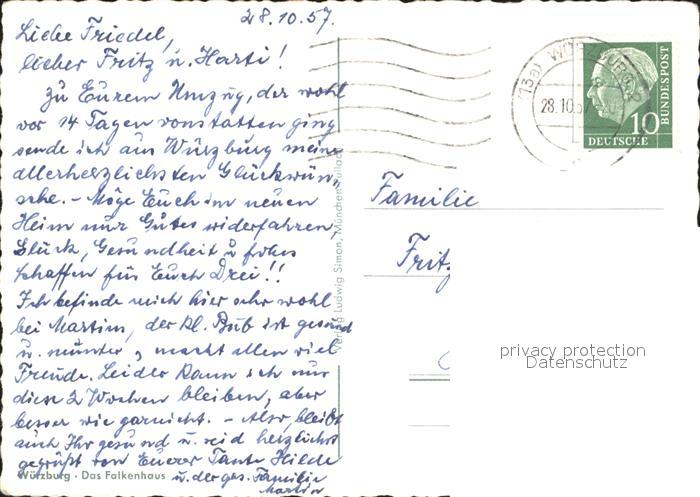 28.10.57.
Liebe Friedel,
lieber Fritz u. Harti!
Zu Eurem Umzug, der wohl
vor 14 Tagen vonstatten ging
sende ich aus Würzburg meine
allerherzlichsten Glückwün-
sche. - Möge Euch im neuen
Heim nur Gutes widerfahren,
Glück, Gesundheit u. frohes
Schaffen für Euch Drei!!
Ich befinde mich hier sehr wohl
bei Martins, der kl. Bub ist gesund
u. munter, macht allen viel
Freude. Leider kann ich nur
diese 2 Wochen bleiben, aber
besser wie garnicht. - Also, bleibt
auch Ihr gesund u. seid herzlichst
gegrüßt von Eurer Tante Hilde
u. der ges. Familie
Martin
Würzburg · Das Falkenhaus
Verlag Ludwig Simon, München-Pullach
(13a) WÜRZBURG 2
28.10.57
10
DEUTSCHE
BUNDESPOST
Familie
Fritz
privacy protection
Datenschutz